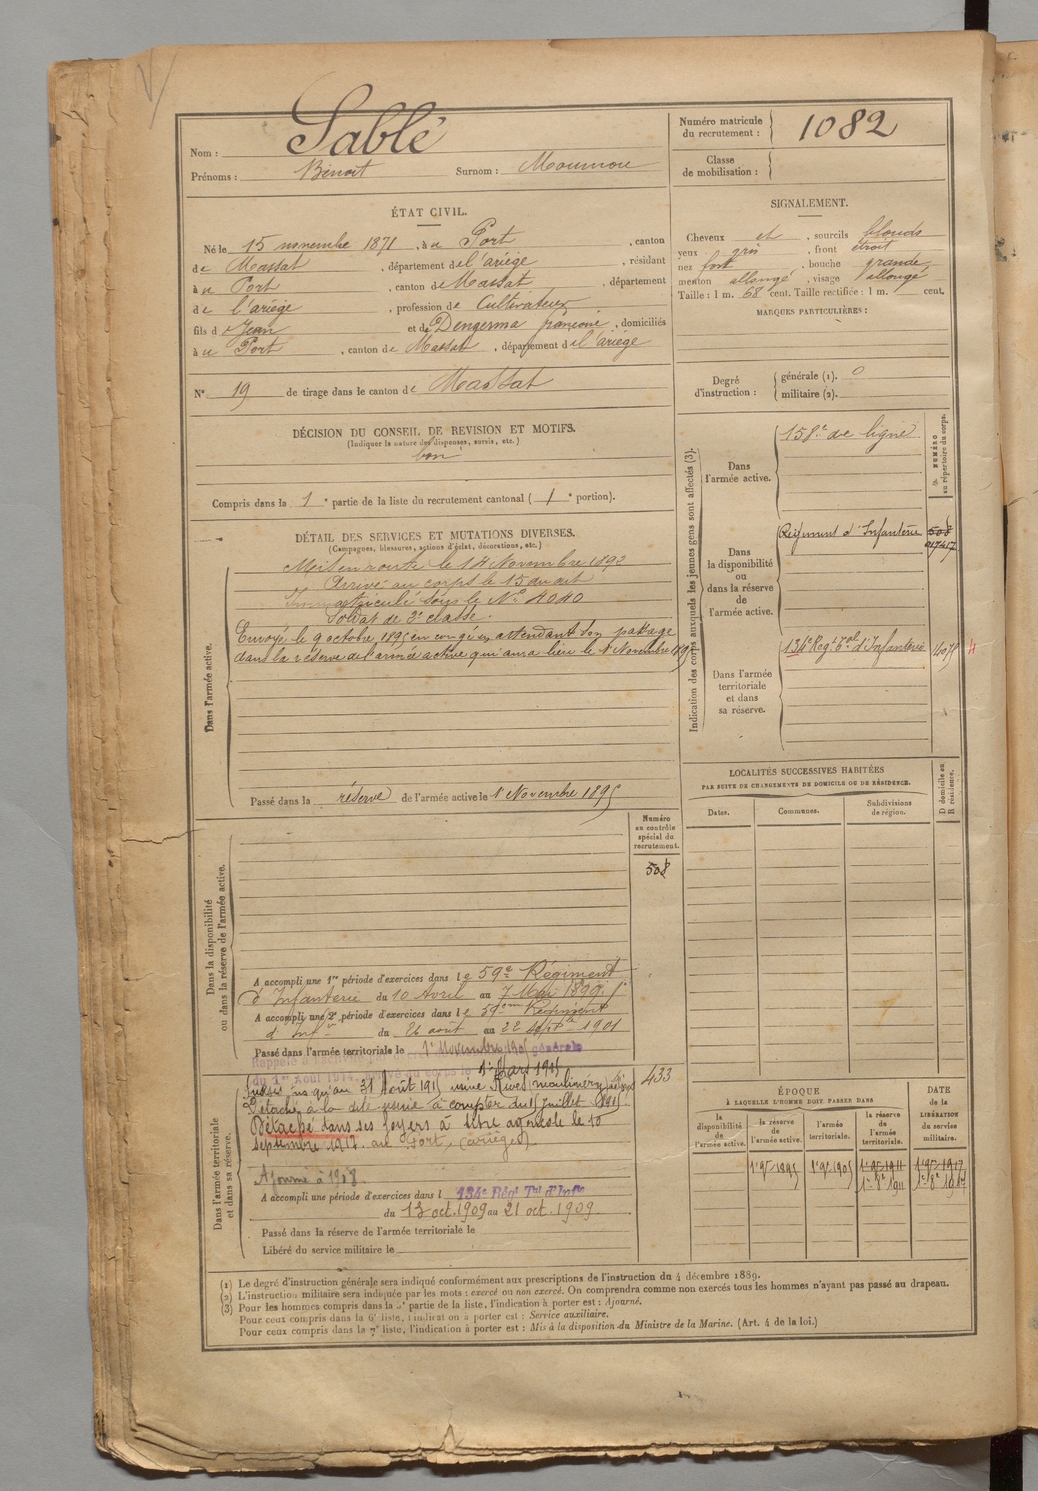 Nom : Sablé
Prénoms : Benoit Surnom : Moumou
Numéro matricule du recrutement : 1082
Classe de mobilisation :
ÉTAT CIVIL.
Né le 15 novembre 1871, à u Port, canton
de Massat, département de l'ariège, résidant
à u Port, canton de Massat, département
de l'ariège, profession de Cultivateur
fils de Jean et de Dengerma françoise, domiciliés
à u Port, canton de Massat, département de l'ariège
N° 19 de tirage dans le canton de Massat
SIGNALEMENT.
Cheveux et, sourcils blonds
yeux gris, front étroit
nez fort, bouche grande
menton allongé, visage allongé
Taille : 1 m. 68 cent. Taille rectifiée : 1 m. cent.
MARQUES PARTICULIÈRES :
Degré d'instruction : générale (1). 0
militaire (2).
DÉCISION DU CONSEIL DE REVISION ET MOTIFS.
(Indiquer la nature des dispenses, sursis, etc.)
bon
Compris dans la 1e partie de la liste du recrutement cantonal (1e portion).
DÉTAIL DES SERVICES ET MUTATIONS DIVERSES.
(Campagnes, blessures, actions d'éclat, décorations, etc.)
Dans l'armée active.
Mis en route le 14 Novembre 1892
Arrivé au corps le 15 du dit
Immatriculé sous le N° 4040
Soldat de 2e classe.
Envoyé le 9 octobre 1895 en congé en attendant son passage
dans la réserve de l'armée active qui aura lieu le 1 Novembre 1895
Passé dans la réserve de l'armée active le 1 Novembre 1895
Indication des corps auxquels les jeunes gens sont affectés (3).
NUMÉRO au répertoire du corps.
Dans l'armée active.
158e de ligne
Dans la disponibilité ou dans la réserve de l'armée active.
Régiment d'Infanterie 508
Dans l'armée territoriale et dans sa réserve.
134e Regt Tal d'Infanterie
LOCALITÉS SUCCESSIVES HABITÉES
PAR SUITE DE CHANGEMENTS DE DOMICILE OU DE RÉSIDENCE.
D domicile ou R résidence.
Dates. Communes. Subdivisions de région.
Dans la disponibilité ou dans la réserve de l'armée active.
Numéro au contrôle spécial du recrutement.
508
A accompli une 1re période d'exercices dans le 59e Régiment
d'Infanterie du 10 Avril au 7 Mai 1899
A accompli une 2e période d'exercices dans le 59eme Régiment
d'Infie du 26 août au 22 sepbre 1901
Passé dans l'armée territoriale le 1 Novembre 1905
Dans l'armée territoriale et dans sa réserve.
du 1er Aout 1914 1 Mars 1915
433
Sursis jusqu'au 31 Août 1915 usine Rives
Détaché à la dite usine à compter du 15 Juillet 1915.
Détaché dans ses foyers à titre agricole le 10
septembre 1917 au Port, (ariège)
Ajourné à 1908
A accompli une période d'exercices dans l 134e Régt Tal d'Infie
du 13 oct. 1909 au 21 oct. 1909
Passé dans la réserve de l'armée territoriale le
Libéré du service militaire le
ÉPOQUE
À LAQUELLE L'HOMME DOIT PASSER DANS
la disponibilité de l'armée active. la réserve de l'armée active. l'armée territoriale. la réserve de l'armée territoriale.
DATE de la LIBÉRATION du service militaire.
1 9bre 1895 1 9bre 1905 1 9bre 1911 1 9bre 1917
1e 8e 1911 1e 8e 1917
(1) Le degré d'instruction générale sera indiqué conformément aux prescriptions de l'instruction du 4 décembre 1889.
(2) L'instruction militaire sera indiquée par les mots : exercé ou non exercé. On comprendra comme non exercés tous les hommes n'ayant pas passé au drapeau.
(3) Pour les hommes compris dans la 2e partie de la liste, l'indication à porter est : Ajourné.
Pour ceux compris dans la 6e liste, l'indication à porter est : Service auxiliaire.
Pour ceux compris dans la 7e liste, l'indication à porter est : Mis à la disposition du Ministre de la Marine. (Art. 4 de la loi.)